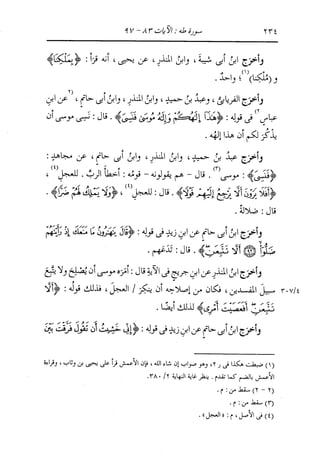 ٢٣٤ سورة طه : الآيات ٨٣ - ٩٧
وأخرج ابنُ أبى شيبةَ ، وابنُ المنذرِ ، عن يحيى ، أنه قرَأ : ﴿بِمَلْكِنَا﴾
و (مُلْكِنا)(١) ؛ واحدٌ .
وأخرج الفريابىُّ ، وعبدُ بنُ حميدٍ ، وابنُ المنذرِ ، وابنُ أبى حاتمٍ ، (٢عن ابنِ
عباسٍ٢) فى قولِه : ﴿هَٰذَآ إِلَٰهُكُمْ وَإِلَٰهُ مُوسَىٰ فَنَسِىَ﴾ . قال : نسِى موسى أن
يذكُرَ لكم أن هذا إلهُه .
وأخرج عبدُ بنُ حميدٍ ، وابنُ المنذرِ ، وابنُ أبى حاتمٍ ، عن مجاهدٍ :
﴿فَنَسِىَ﴾ : موسى(٣) . قال - هم يقولونه - قومُه : أخطَأ الربَّ . للعجلِ(٤) ،
﴿أَفَلَا يَرَوْنَ أَلَّا يَرْجِعُ إِلَيْهِمْ قَوْلًا﴾ . قال : للعجلِ(٤) ، ﴿وَلَا يَمْلِكُ لَهُمْ ضَرًّا﴾ .
قال : ضلالةً .
وأخرج ابنُ أبى حاتمٍ عن ابنِ زيدٍ فى قولِه : ﴿قَالَ يَٰهَٰرُونُ مَا مَنَعَكَ إِذْ رَأَيْتَهُمْ
ضَلُّوٓا۟ ﴿٩٢﴾ أَلَّا تَتَّبِعَنِ﴾ . قال : تدَعَهم .
وأخرج ابنُ المنذرِ عن ابنِ جريجٍ فى الآيةِ قال : أمَره موسى أن يُصلِحَ ولا يتَّبعَ
٣٠٧/٤ سبيلَ المفسدين ، فكان من إصلاحِه أن يُنكِرَ / العجلَ ، فذلك قولُه : ﴿أَلَّا
تَتَّبِعَنِ أَفَعَصَيْتَ أَمْرِى﴾ لذلك أيضًا .
وأخرج ابنُ أبى حاتمٍ عن ابنِ زيدٍ فى قولِه : ﴿إِنِّى خَشِيتُ أَن تَقُولَ فَرَّقْتَ بَيْنَ
(١) ضبطت هكذا فى ر ٢، وهو صواب إن شاء الله ، فإن الأعمش قرأ على يحيى بن وثاب ، وقراءة
الأعمش بالضم كما تقدم . ينظر غاية النهاية ٢/ ٣٨٠.
(٢ - ٢) سقط من : م .
(٣) سقط من : م .
(٤) فى الأصل ، م : «العجل» .